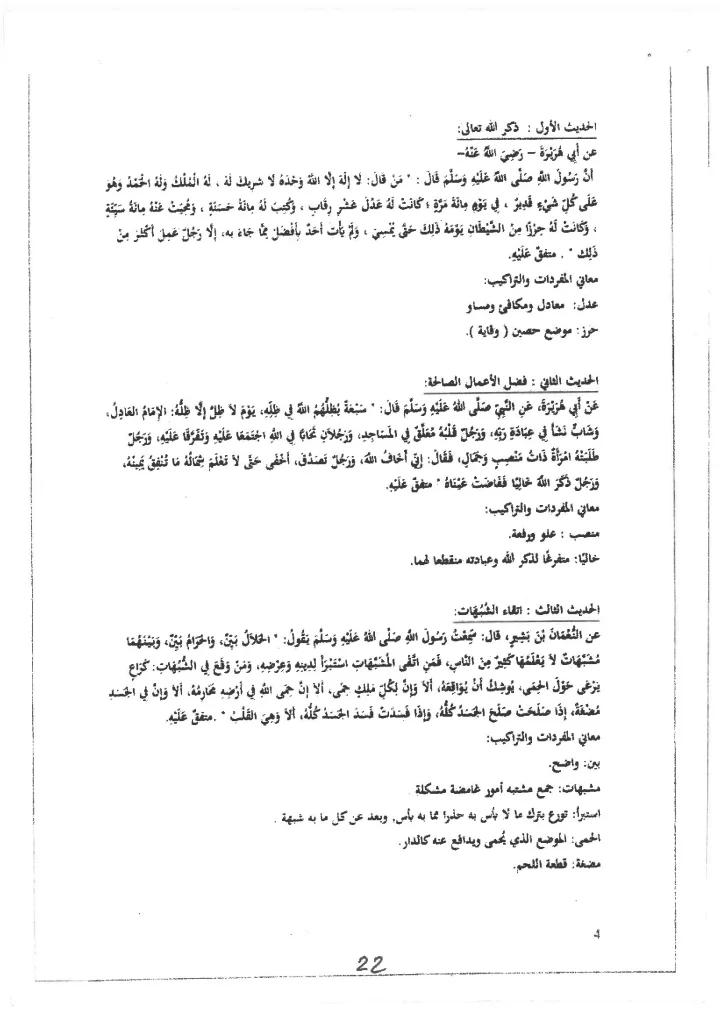 الحديث الأول : ذكر الله تعالى:
عن أَبِي هُرَيْرَةَ – رَضِيَ اللهُ عَنْهُ–
أَنَّ رَسُولَ اللهِ صَلَّى اللهُ عَلَيْهِ وَسَلَّمَ قَالَ : " مَنْ قَالَ: لَا إِلَهَ إِلَّا اللهُ وَحْدَهُ لَا شَرِيكَ لَهُ ، لَهُ الْمُلْكُ وَلَهُ الْحَمْدُ وَهُوَ
عَلَى كُلِّ شَيْءٍ قَدِيرٌ ، فِي يَوْمٍ مِائَةَ مَرَّةٍ ؛ كَانَتْ لَهُ عَدْلَ عَشْرِ رِقَابٍ ، وَكُتِبَ لَهُ مِائَةُ حَسَنَةٍ ، وَمُحِيَتْ عَنْهُ مِائَةُ سَيِّئَةٍ
، وَكَانَتْ لَهُ حِرْزًا مِنَ الشَّيْطَانِ يَوْمَهُ ذَلِكَ حَتَّى يُمْسِيَ ، وَلَمْ يَأْتِ أَحَدٌ بِأَفْضَلَ مِمَّا جَاءَ بِهِ، إِلَّا رَجُلٌ عَمِلَ أَكْثَرَ مِنْ
ذَلِكَ " . متفقٌ عَلَيْهِ.
معاني المفردات والتراكيب:
عدل: معادل ومكافئ ومساو
حرز: موضع حصين ( وقاية ).
الحديث الثاني : فضل الأعمال الصالحة:
عَنْ أَبِي هُرَيْرَةَ، عَنِ النَّبِيِّ صَلَّى اللهُ عَلَيْهِ وَسَلَّمَ قَالَ: " سَبْعَةٌ يُظِلُّهُمُ اللهُ فِي ظِلِّهِ، يَوْمَ لاَ ظِلَّ إِلَّا ظِلُّهُ: الإِمَامُ العَادِلُ،
وَشَابٌّ نَشَأَ فِي عِبَادَةِ رَبِّهِ، وَرَجُلٌ قَلْبُهُ مُعَلَّقٌ فِي المَسَاجِدِ، وَرَجُلاَنِ تَحَابَّا فِي اللهِ اجْتَمَعَا عَلَيْهِ وَتَفَرَّقَا عَلَيْهِ، وَرَجُلٌ
طَلَبَتْهُ امْرَأَةٌ ذَاتُ مَنْصِبٍ وَجَمَالٍ، فَقَالَ: إِنِّي أَخَافُ اللهَ، وَرَجُلٌ تَصَدَّقَ، أَخْفَى حَتَّى لاَ تَعْلَمَ شِمَالُهُ مَا تُنْفِقُ يَمِينُهُ،
وَرَجُلٌ ذَكَرَ اللهَ خَالِيًا فَفَاضَتْ عَيْنَاهُ " متفق عَلَيْهِ.
معاني المفردات والتراكيب:
منصب : علو ورفعة.
خاليًا: متفرغًا لذكر الله وعبادته منقطعا لهما.
الحديث الثالث : اتقاء الشُبُهَات:
عن النُّعْمَانَ بْنَ بَشِيرٍ، قال: سَمِعْتُ رَسُولَ اللهِ صَلَّى اللهُ عَلَيْهِ وَسَلَّمَ يَقُولُ: " الحَلاَلُ بَيِّنٌ، وَالحَرَامُ بَيِّنٌ، وَبَيْنَهُمَا
مُشَبَّهَاتٌ لاَ يَعْلَمُهَا كَثِيرٌ مِنَ النَّاسِ، فَمَنِ اتَّقَى المُشَبَّهَاتِ اسْتَبْرَأَ لِدِينِهِ وَعِرْضِهِ، وَمَنْ وَقَعَ فِي الشُّبُهَاتِ: كَرَاعٍ
يَرْعَى حَوْلَ الحِمَى، يُوشِكُ أَنْ يُوَاقِعَهُ، أَلاَ وَإِنَّ لِكُلِّ مَلِكٍ حِمًى، أَلاَ إِنَّ حِمَى اللهِ فِي أَرْضِهِ مَحَارِمُهُ، أَلاَ وَإِنَّ فِي الجَسَدِ
مُضْغَةً، إِذَا صَلَحَتْ صَلَحَ الجَسَدُ كُلُّهُ، وَإِذَا فَسَدَتْ فَسَدَ الجَسَدُ كُلُّهُ، أَلاَ وَهِيَ القَلْبُ " .متفقٌ عَلَيْهِ.
معاني المفردات والتراكيب:
بين: واضح.
مشبهات: جمع مشتبه أمور غامضة مشكلة
استبرأ: تورع بترك ما لا بأس به حذرا مما به بأس, وبعد عن كل ما به شبهة .
الحمى: الموضع الذي يُحمى ويدافع عنه كالدار.
مضغة: قطعة اللحم.
4
22